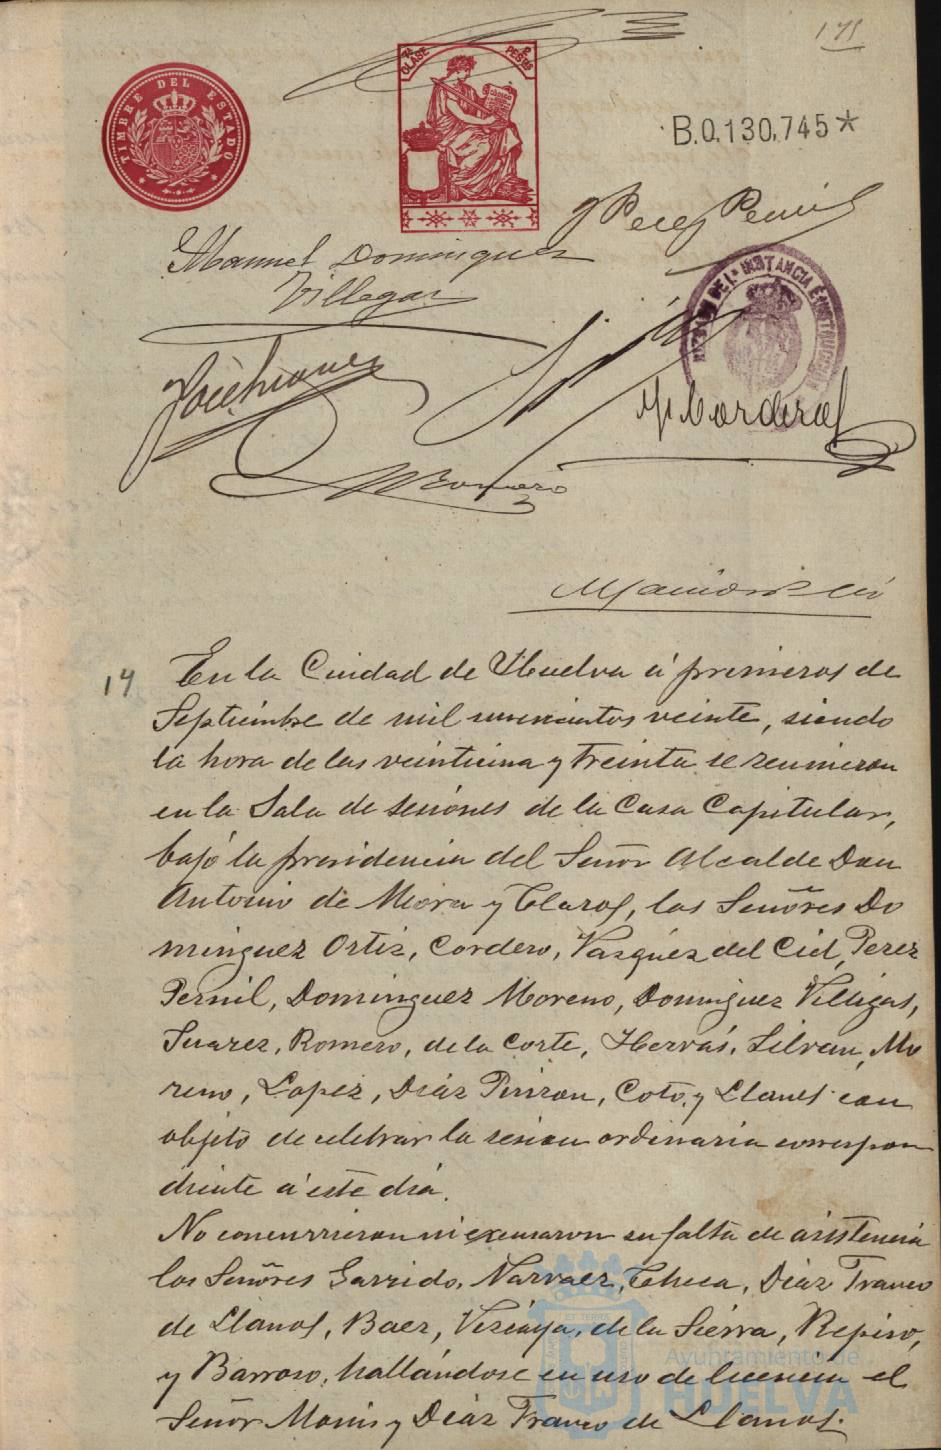 171
TIMBRE DEL ESTADO
7ª CLASE 2 PESTAS
B.0.130,745*
J Perez Pernil
Manuel Dominguez
Villegas
DE 1ª INSTANCIA É INSTRUCCION
M Cordero
M Romero
14 En la Ciudad de Huelva á primeros de
Septiembre de mil novecientos veinte, siendo
la hora de las veintiuna y treinta se reunieron
en la Sala de sesiónes de la Casa Capitular,
bajó la presidencia del Señor Alcalde Don
Antonio de Mora y Claros, los Señores Do
minguez Ortiz, Cordero, Vazquez del Cid, Perez
Pernil, Dominguez Moreno, Dominguez Villegas,
Suarez, Romero, de la Corte, Hervás, Silvan, Mo
reno, Lopez, Diáz Pinzon, Coto, y Llanes con
objeto de celebrar la sesion ordinaria correspon
diente á este diá.
No concurrieron ni excusaron su falta de asistencia
los Señores Garrido, Narvaez, Checa, Diáz Franco
de Llanos, Baez, Vizcaya, de la Siérra, Repiso,
y Barroso, hallándose en uso de licencia el
Señor Monis y Diáz Franco de Llanos.
Ayuntamiento de
HUELVA